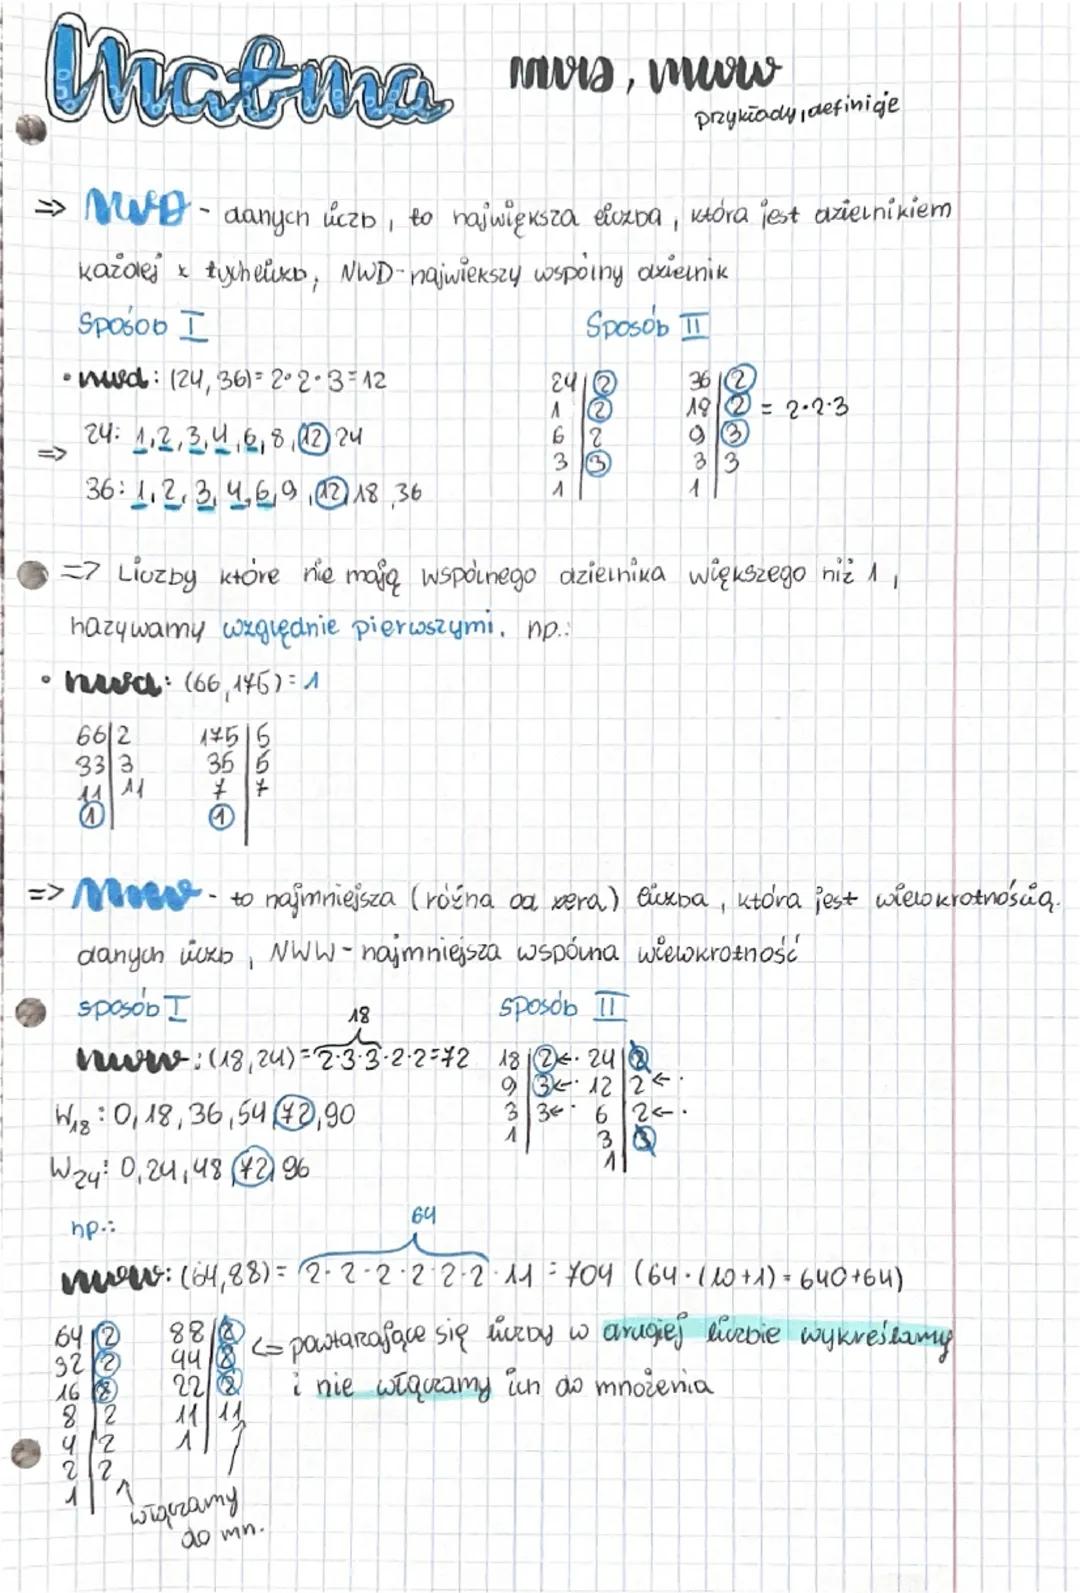 Matma
nwd, nww
przykłady, definicje
=> NWD - danych liczb, to największa liczba, która jest dzielnikiem
każdej z tych liczb, NWD-największy wspólny dzielnik
Sposób I
Sposób II
• nwd: (24, 36) = 2·2·3 = 12
24 | 2
1 | 2
6 | 2
3 | 3
1 |
36 | 2
18 | 2 = 2·2·3
9 | 3
3 | 3
1 |
=> 24: 1, 2, 3, 4, 6, 8, 12 24
36: 1, 2, 3, 4, 6, 9, 12, 18, 36
=> Liczby które nie mają wspólnego dzielnika większego niż 1,
nazywamy względnie pierwszymi. np.:
• nwd: (66, 175) = 1
66 | 2
33 | 3
11 | 11
1 |
175 | 5
35 | 5
7 | 7
1 |
=> NWW - to najmniejsza (różna od zera) liczba, która jest wielokrotnością
danych liczb, NWW - najmniejsza wspólna wielokrotność
sposób I
sposób II
18
nww: (18, 24) = 2·3·3·2·2 = 72
W18: 0, 18, 36, 54, 72, 90
W24: 0, 24, 48, 72, 96
18 | 2 <-·
9 | 3 <-·
3 | 3 <-·
1 |
24 | 2
12 | 2 <-·
6 | 2 <-·
3 | 3
1 |
np.:
64
nww: (64, 88) = 2·2·2·2·2·2·11 = 704 (64·(10+1) = 640+64)
64 | 2
32 | 2
16 | 2
8 | 2
4 | 2
2 | 2
1 |
88 | 2
44 | 2
22 | 2
11 | 11
1 |
<= powtarzające się liczby w drugiej liczbie wykreślamy
i nie włączamy ich do mnożenia
włączamy
do mn.